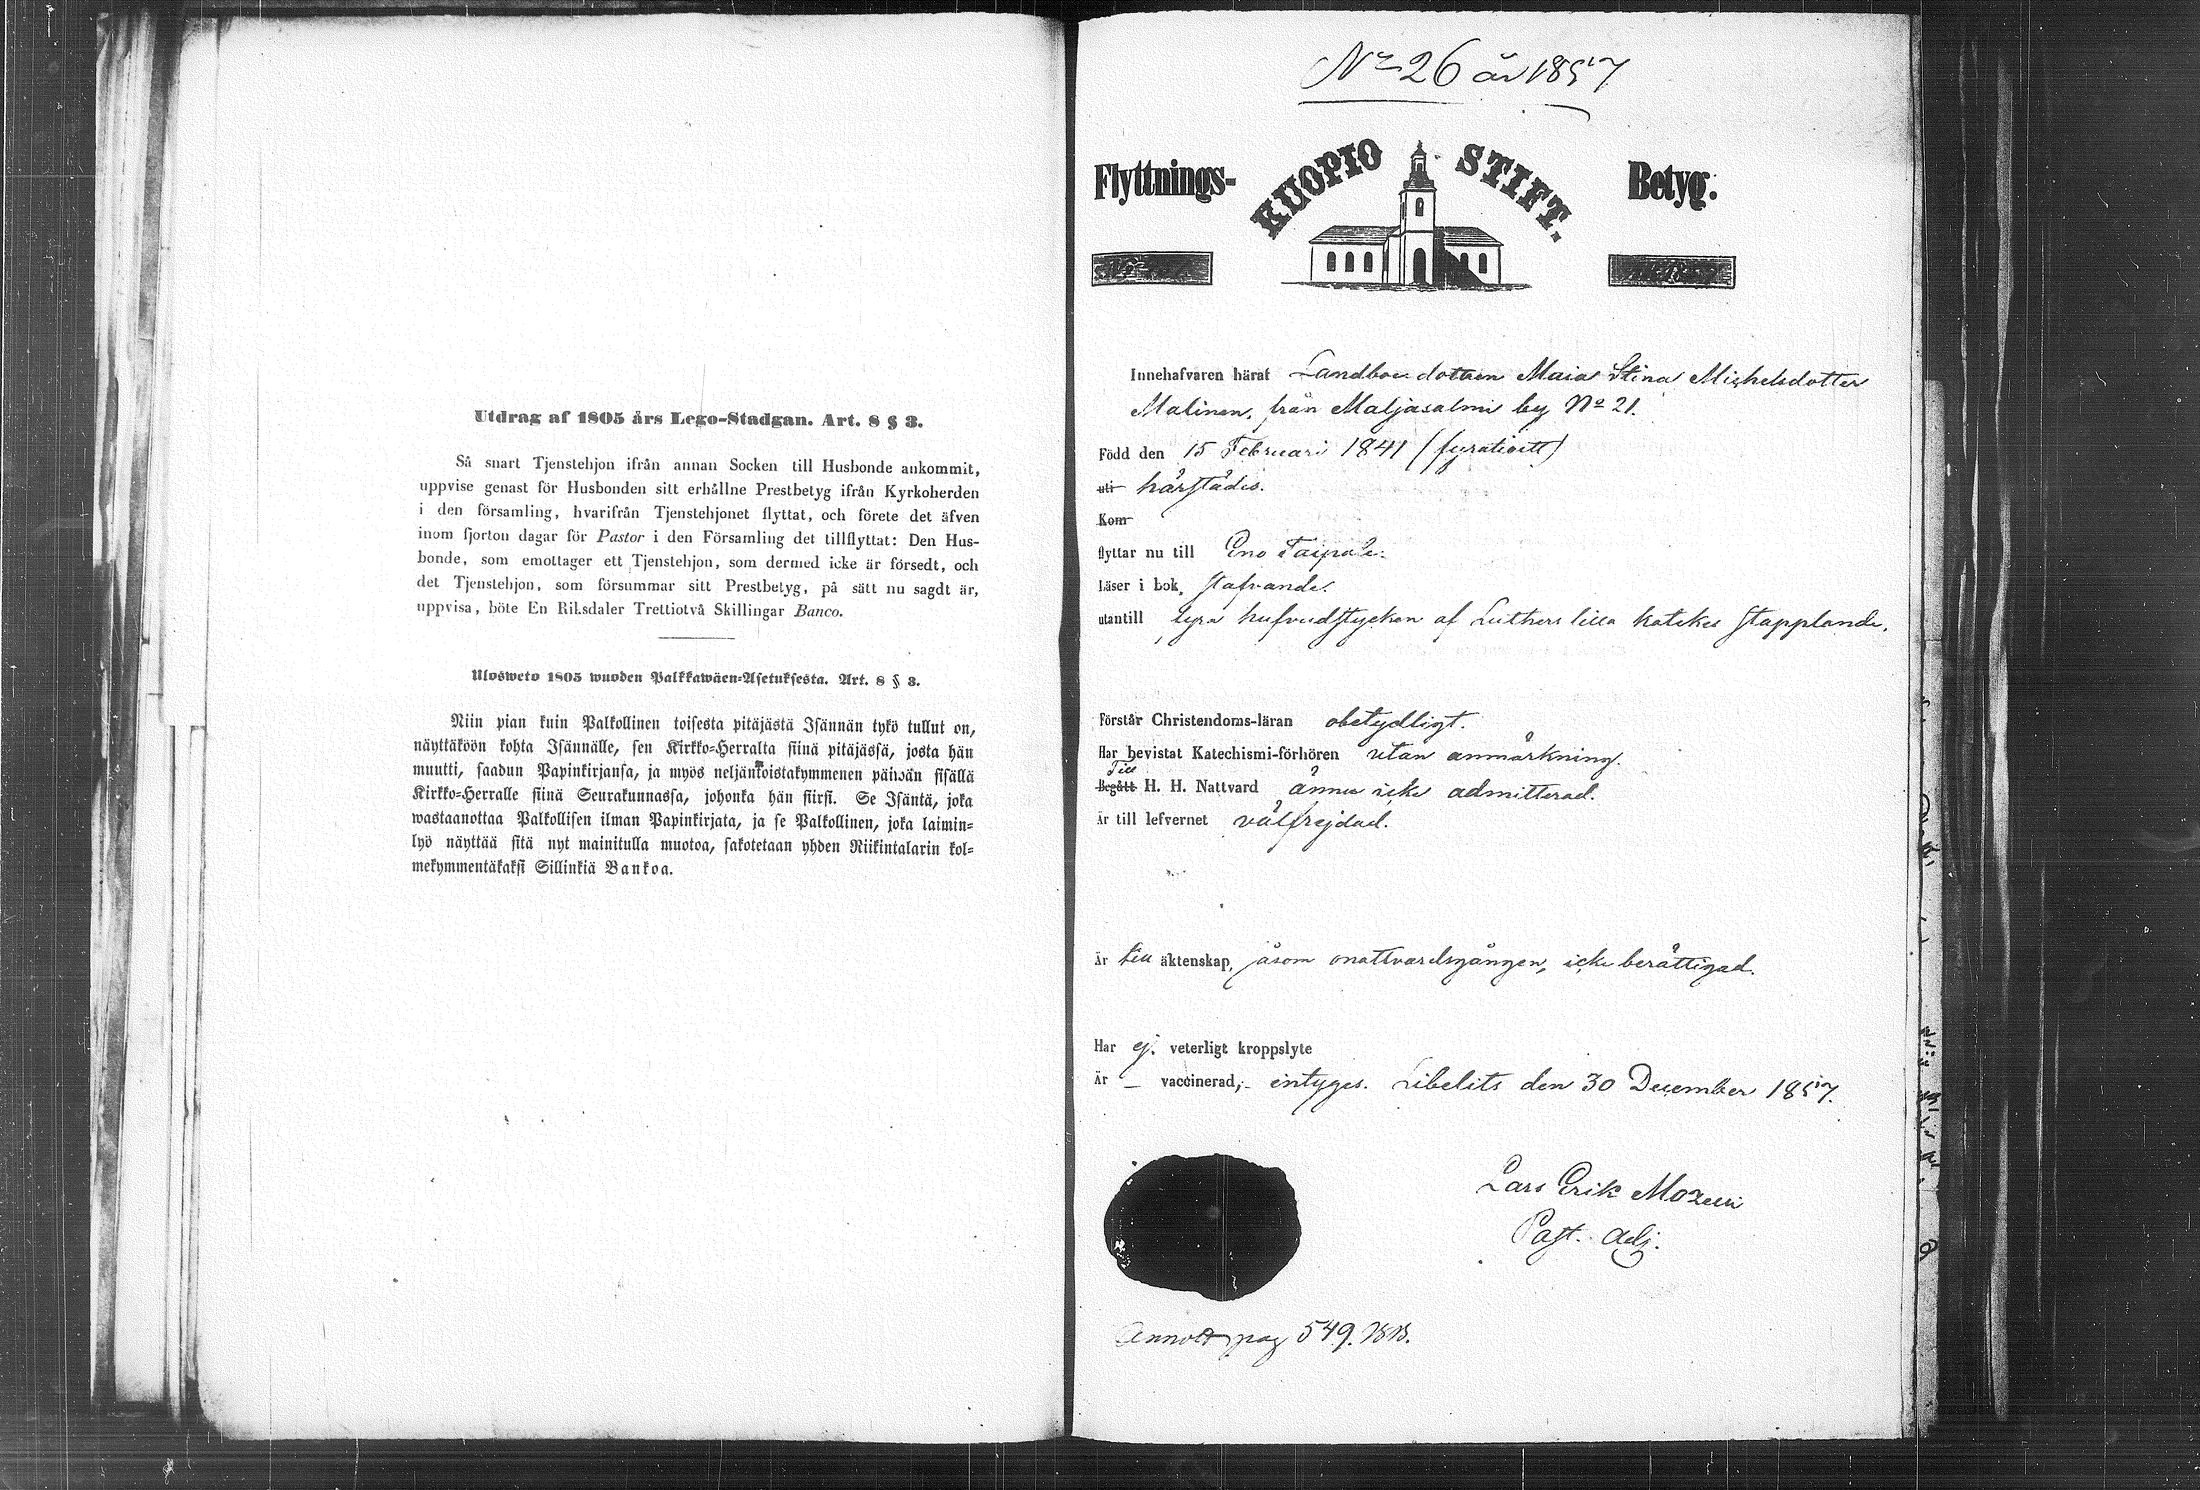 Utdrag af 1805 års Lego-Stadgan. Art. 8 § 3.
Så snart Tjenstehjon ifrån annan Socken till Husbonde ankommit,
uppvise genast för Husbonden sitt erhållne Prestbetyg ifrån Kyrkoherden
i den församling, hvarifrån Tjenstehjonet flyttat, och förete det äfven
inom fjorton dagar för Pastor i den Församling det tillflyttat: Den Hus-
bonde, som emottager ett Tjenstehjon, som dermed icke är försedt, och
det Tjenstehjon, som försummar sitt Prestbetyg, på sätt nu sagdt är,
uppvisa, böte En Riksdaler Trettiotvå Skillingar Banco.
Ulosweto 1805 wuoden Palkkawäen-Asetuksesta. Art. 8 § 3.
Niin pian kuin Palkollinen toisesta pitäjästä Isännän tykö tullut on,
näyttäköön kohta Isännälle, sen Kirkko-Herralta siinä pitäjässä, josta hän
muutti, saadun Papinkirjansa, ja myös neljäntoistakymmenen päiwän sisällä
Kirkko-Herralle siinä Seurakunnassa, johonka hän siirsi. Se Isäntä, joka
wastaanottaa Palkollisen ilman Papinkirjata, ja se Palkollinen, joka laimin-
lyö näyttää sitä nyt mainitulla muotoa, sakotetaan yhden Riikintalarin kol-
mekymmentäkaksi Sillinkiä Bankoa.
Nr 26 år 1857
Flyttnings- KUOPIO STIFT. Betyg.
Innehafvaren häraf Landbondottren Maia Stina Michelsdotter
Malinen, från Maljasalmi by No 21.
Född den 15 Februari 1841 (fyratioett)
uti härstädes.
Kom
flyttar nu till Eno Taipale.
Läser i bok, stafvande.
utantill fyra hufvudstycken af Luthers lilla katekes stapplande.
Förstår Christendoms-läran obetydligt.
Har bevistat Katechismi-förhören utan anmärkning.
Till
Begått H. H. Nattvard ännu icke admitterad.
Är till lefvernet välfrejdad.
Är till äktenskap, såsom onattvardsgången, icke berättigad.
Har ej veterligt kroppslyte
Är – vaccinerad,- intyges. Libelits den 30 December 1857.
Lars Erik
Past. Adj.
Annot pag 549.